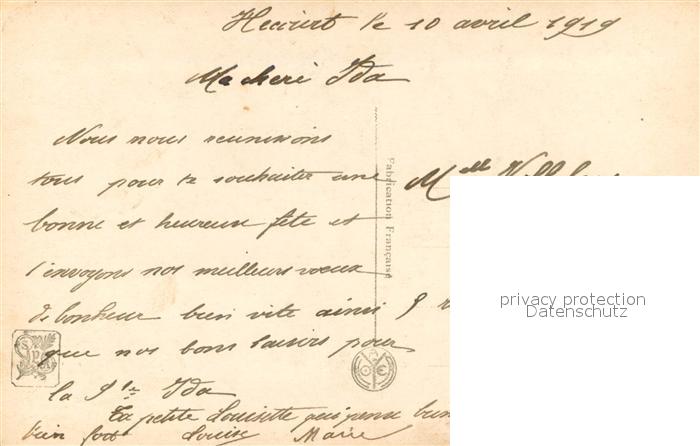 Hecourt le 10 avril 1919
Ma cheri Ida
Nous nous reunirons
tous pour te souhaiter une
bonne et heureux fête et
t'envoyons nos meilleurs vœux
de bonheur bien vite ainsi
que nos bons baisers pour
la Ste Ida
Ta petite Louisette qui pense bien
bien fort Louise Marie
Melle
Fabrication Française
privacy protection
Datenschutz